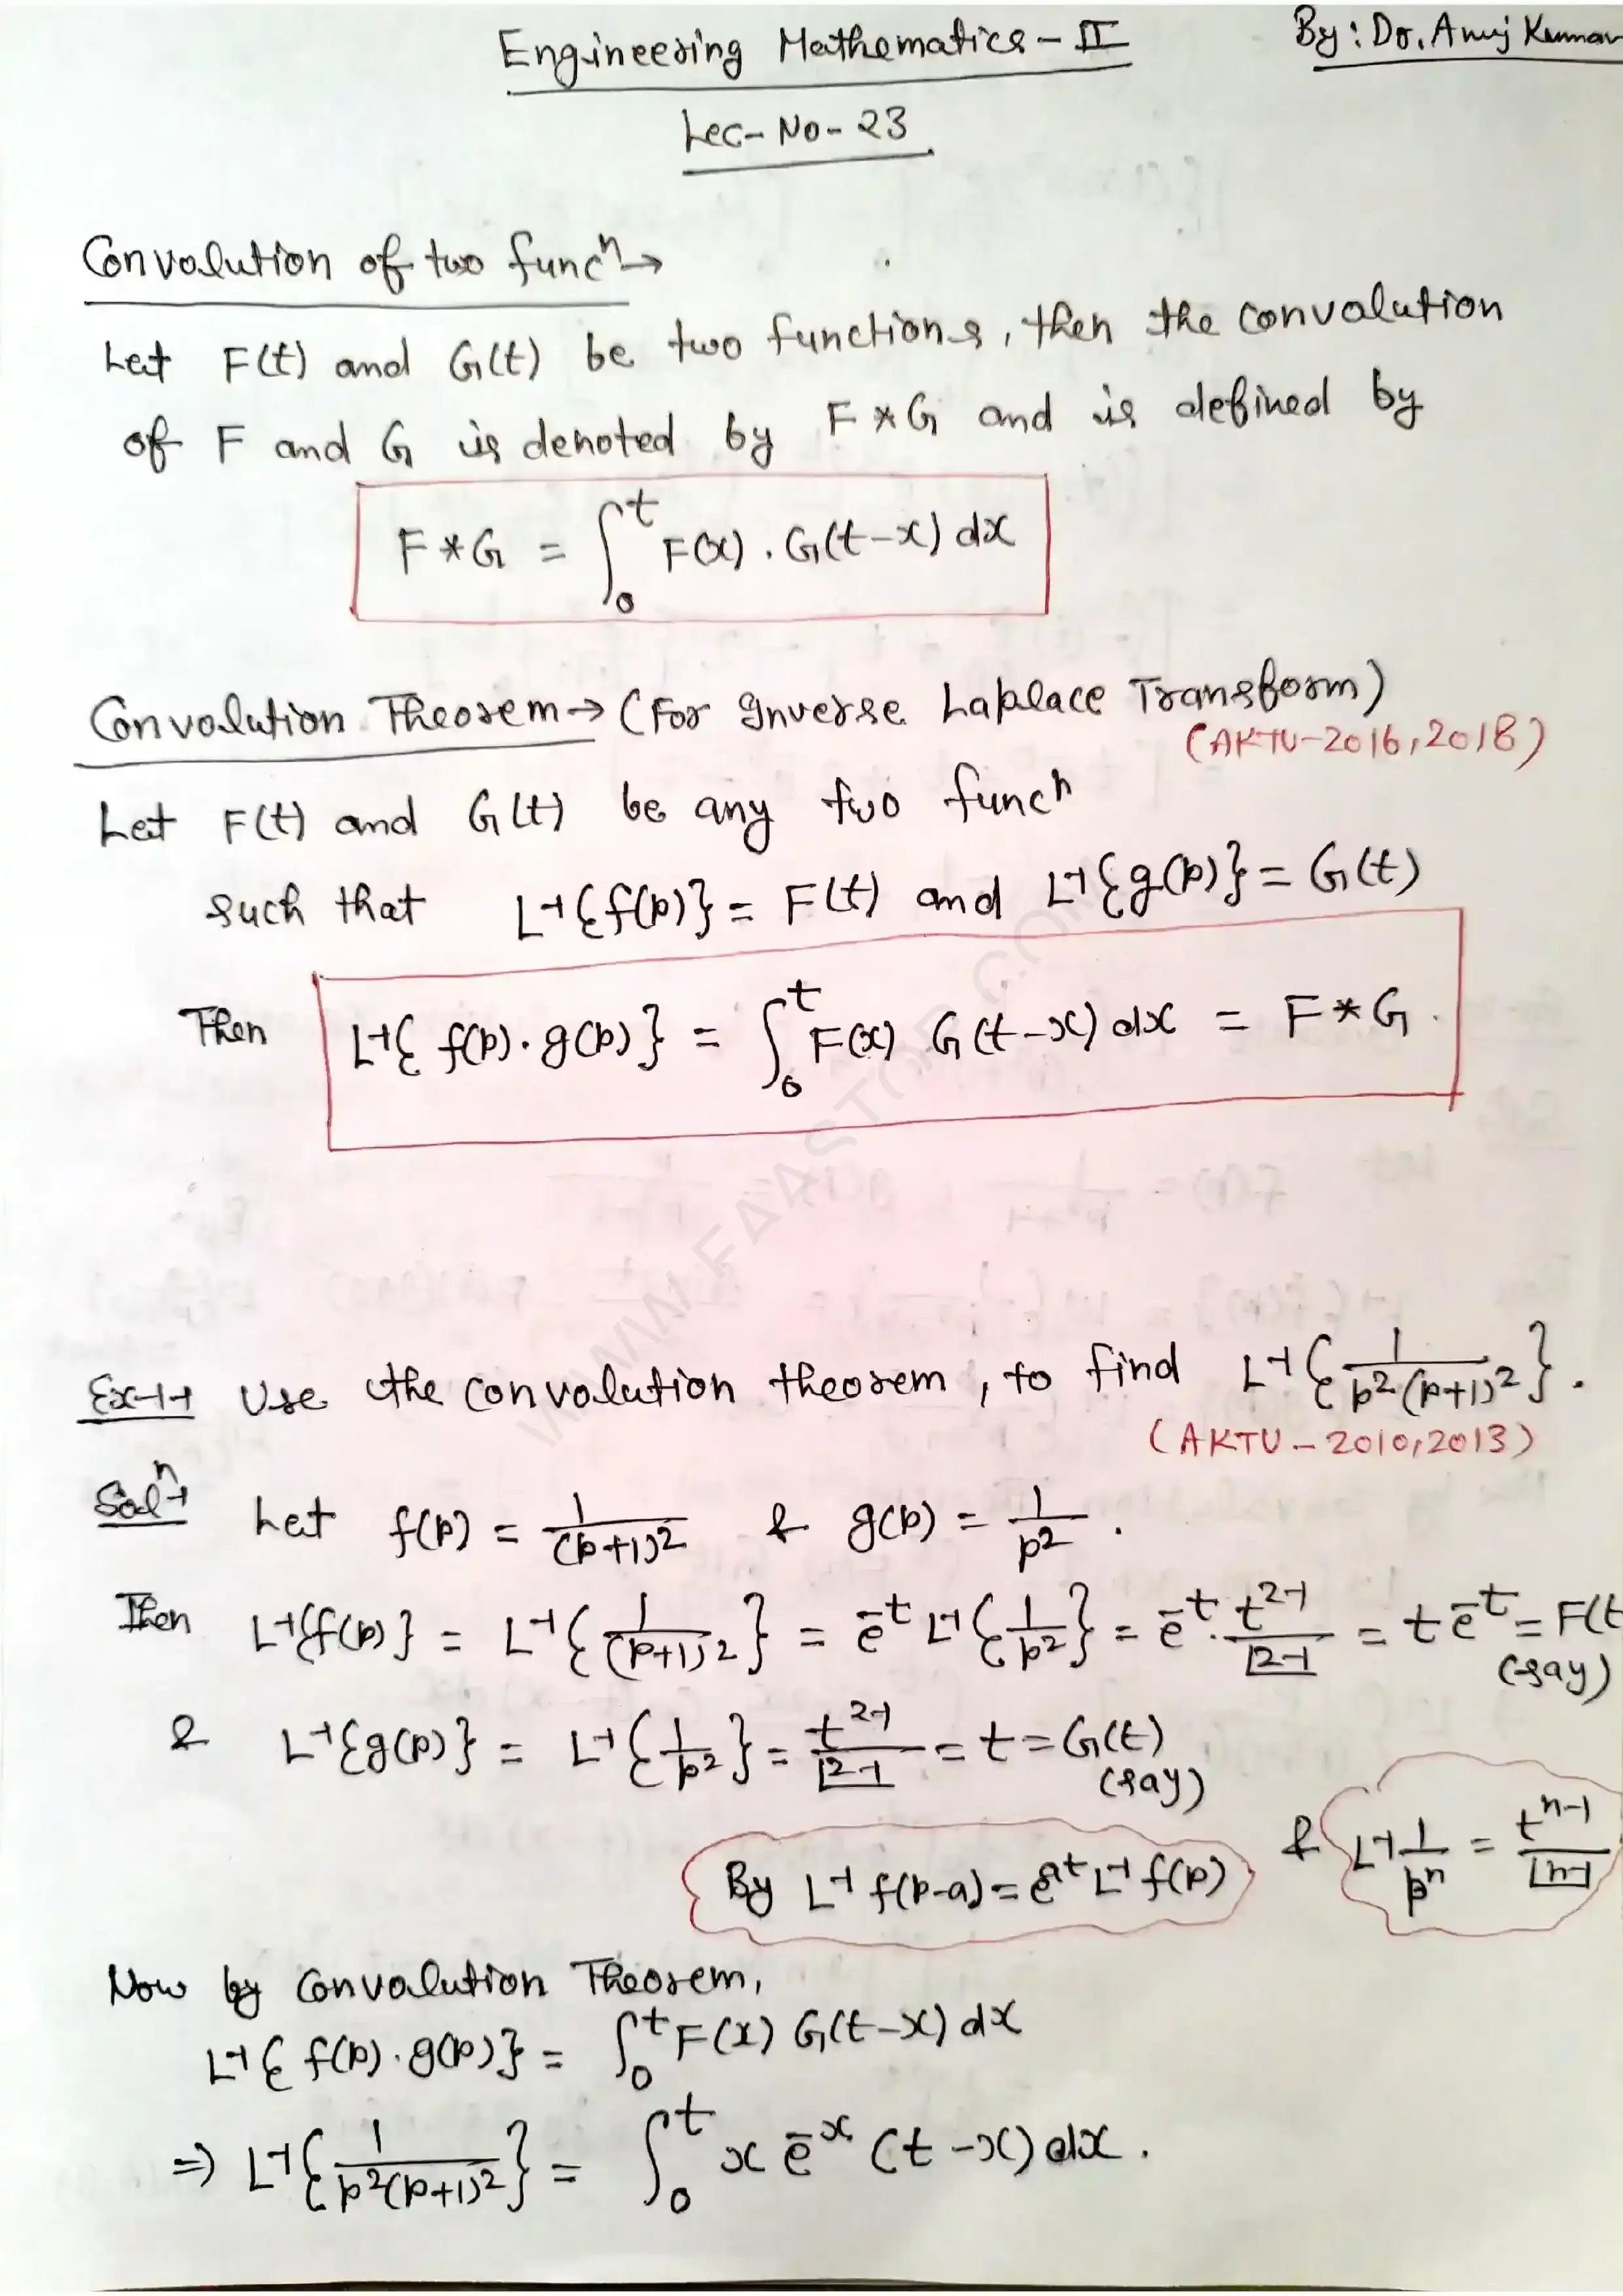 Engineering Mathematics-II
By: Dr. Anuj Kumar
Lec-No-23
Convolution of two funcⁿ→
Let F(t) and G(t) be two functions, then the convolution
of F and G is denoted by F*G and is defined by
F*G = ∫₀ᵗ F(x).G(t-x)dx
Convolution Theorem→(For Inverse Laplace Transform)
(AKTU-2016,2018)
Let F(t) and G(t) be any two funcⁿ
such that L⁻¹{f(p)} = F(t) and L⁻¹{g(p)} = G(t)
Then L⁻¹{f(p).g(p)} = ∫₀ᵗ F(x) G(t-x)dx = F*G.
WWW.FAASTOP.COM
Ex-1→ Use the convolution theorem, to find L⁻¹{1/p²(p+1)²}.
(AKTU-2010,2013)
Solⁿ→ Let f(p) = 1/(p+1)² & g(p) = 1/p².
Then L⁻¹{f(p)} = L⁻¹{1/(p+1)²} = e⁻ᵗ L⁻¹{1/p²} = e⁻ᵗ.t²⁻¹/|2-1 = te⁻ᵗ = F(t
(say)
& L⁻¹{g(p)} = L⁻¹{1/p²} = t²⁻¹/|2-1 = t = G(t)
(say)
By L⁻¹ f(p-a) = eᵃᵗ L⁻¹ f(p) & L⁻¹ 1/pⁿ = tⁿ⁻¹/|n-1
Now by convolution Theorem,
L⁻¹{f(p).g(p)} = ∫₀ᵗ F(x) G(t-x)dx
⇒ L⁻¹{1/p²(p+1)²} = ∫₀ᵗ x e⁻ˣ (t-x)dx.